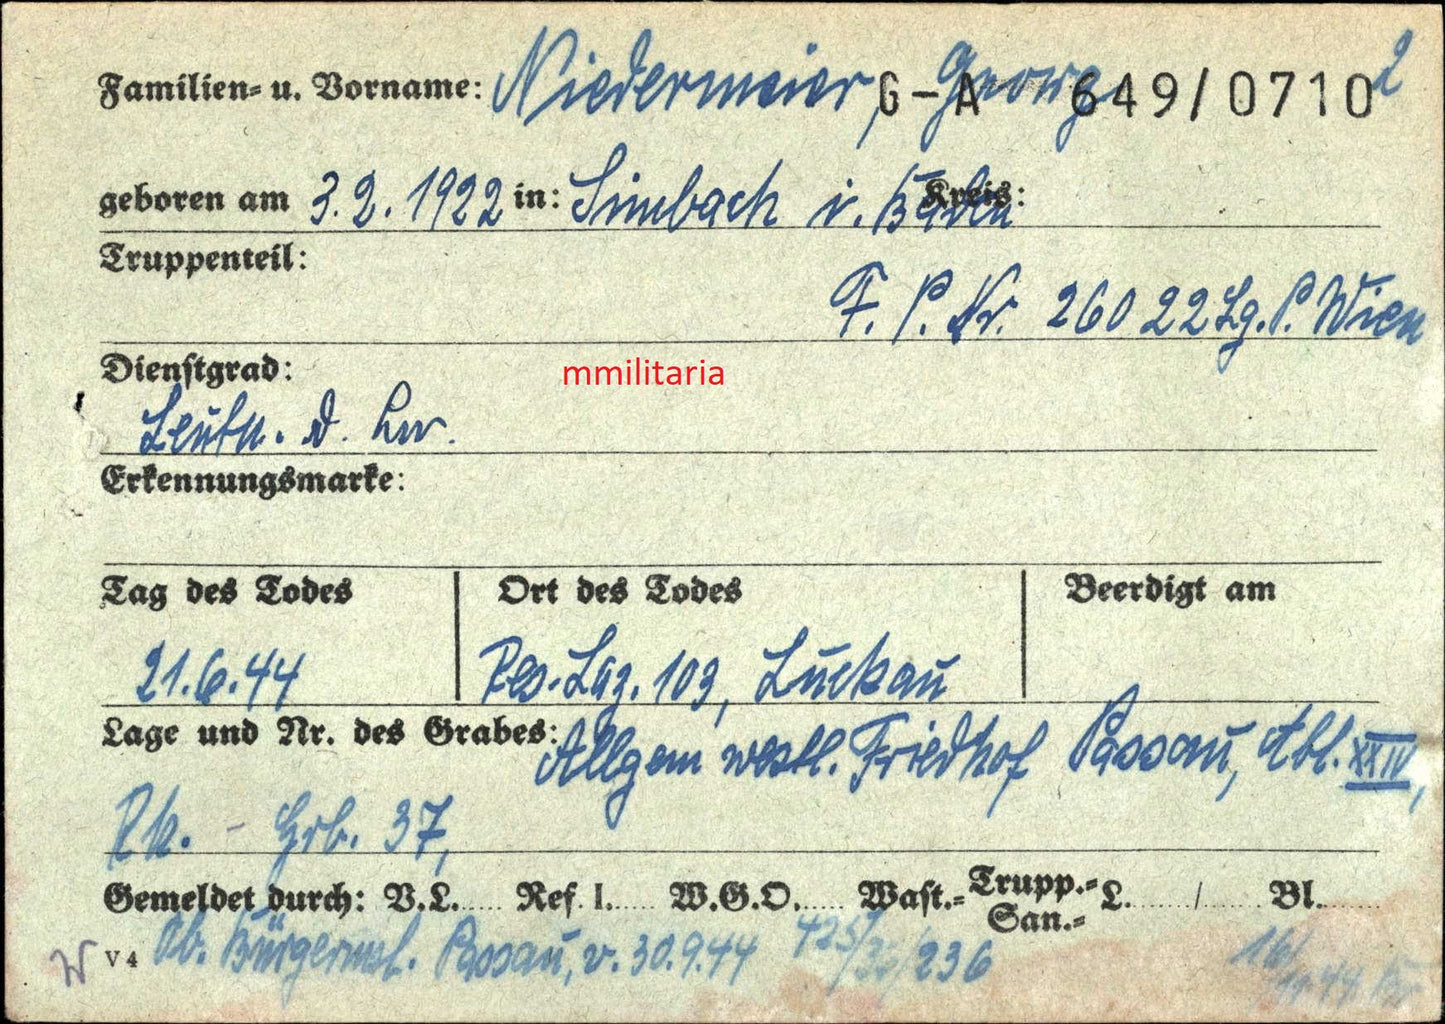 Familien- u. Vorname: Niedermeier, Georg G-A 649/0710 2
geboren am 3.2.1922 in: Simbach i. Kreis:
Truppenteil:
F. P. Nr. 26022 Lg. P. Wien
Dienstgrad:
mmilitaria
Leutn. d. Lw.
Erkennungsmarke:
Tag des Todes Ort des Todes Beerdigt am
21.6.44 Res. Laz. 103, Luckau
Lage und Nr. des Grabes: Allgem westl. Friedhof Passau, Abt. XXIV,
Rh. - Grb. 37,
Gemeldet durch: V.L. Ref. I. W.G.O. Wast.- Trupp.- San.- L. / Bl.
W V 4 Ob. Bürgermst. Passau, v. 30.9.44 236